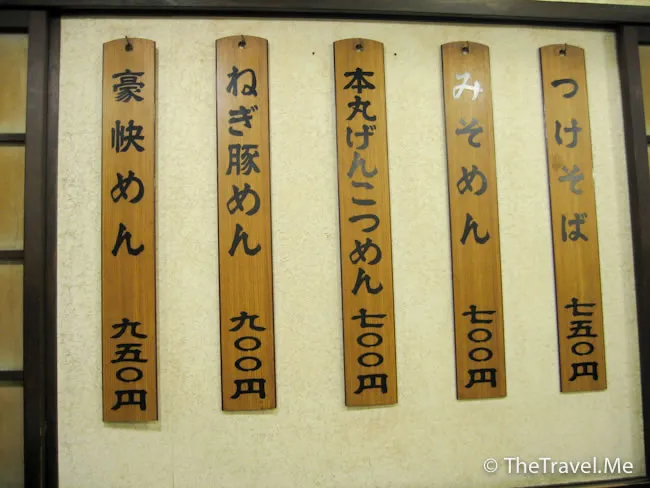 つけそば 七五〇円
みそめん 七〇〇円
本丸げんこつめん 七〇〇円
ねぎ豚めん 九〇〇円
豪快めん 九五〇円
© TheTravel.Me